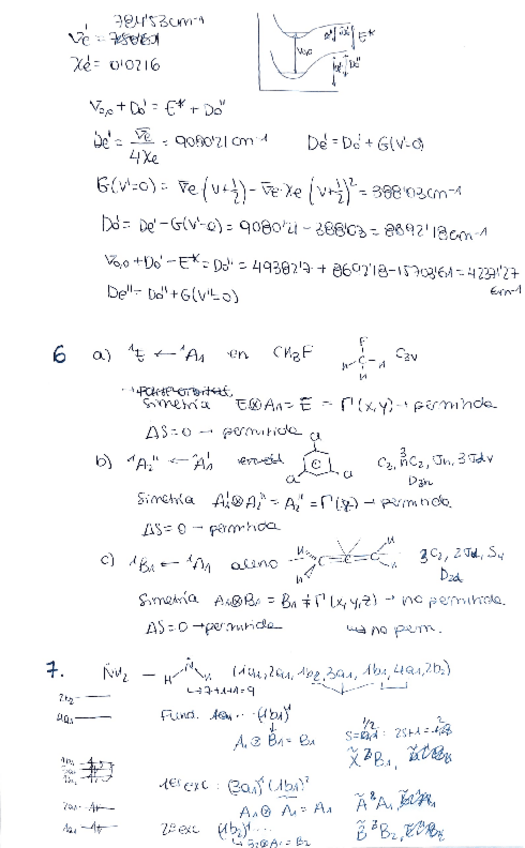 784'53cm⁻¹
ν̄e' =
Xe' = 0'0216
V₀,₀ E*
V₀,₀ + Do' = E* + Do''
De' = ν̄e / 4Xe = cm⁻¹ De' = Do' + G(v'=0)
G(v'=0) = ν̄e (v+½) - ν̄e Xe (v+½)² = 388'03cm⁻¹
Do' = De' - G(v'=0) = 9080'21 - 388'03 = 8692'18cm⁻¹
V₀,₀ + Do' - E* = Do'' = 49382'7 + 8692'18 - 15703'61 = cm⁻¹
De'' = Do'' + G(v''=0)
6 a) ¹E ← ¹A₁ en CH₃F C₃v
Simetría E⊗A₁ = E = Γ(x,y) → permitida
ΔS=0 → permitida
b) ¹A₂'' ← ¹A₁' Cl Cl Cl D₃h
Simetría A₁'⊗A₂'' = A₂'' = Γ(z) → permitida.
ΔS=0 → permitida
c) ¹B₁ ← ¹A₁ aleno 3C₂, 2σd, S₄
D₂d
Simetría A₁⊗B₁ = B₁ ≠ Γ(x,y,z) → no permitida.
ΔS=0 → permitida ↳ no perm.
7. ṄH₂ - (1a₁, 2a₁, 1b₂, 3a₁, 1b₁, 4a₁, 2b₂)
↳ 7+1+1=9
2b₂
4a₁
Fund. 1a₁ ... (1b₁)¹
A₁⊗B₁ = B₁ X̃ ²B₁
1er exc : (3a₁)¹ (1b₁)²
A₁⊗A₁ = A₁ Ã ²A₁
2a₁
1a₁
2º exc (1b₂)¹ ...
↳ B₂⊗A₁ = B₂ B̃ ²B₂